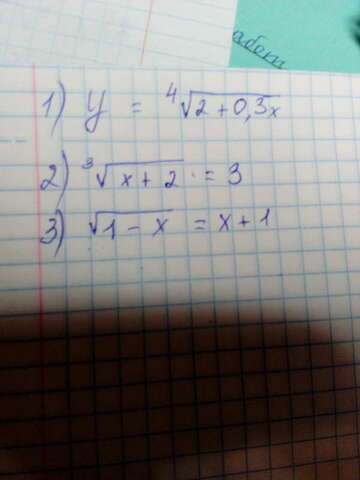 абот
1) y = ⁴√2 + 0,3x
2) ³√x + 2 = 3
3) √1 - x = x + 1